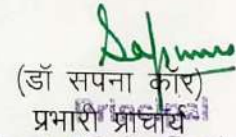 Sapna
(डॉ सपना कौर)
प्रभारी प्राचार्य
Principal